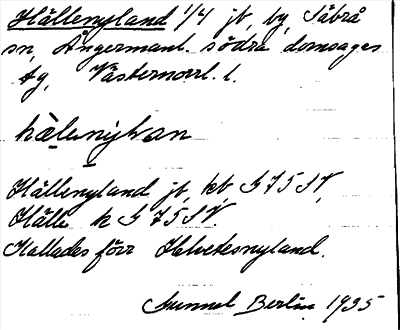 Hällenyland 1/4 jb, by, Säbrå
sn, Ångermanl. södra domsagas
tg, Västernorrl. l.
Hällenyland jb, kb, G 75 SV,
Hälle k G 75 SV.
Kallades förr Helvetesnyland.
Gunnel Berlin 1935